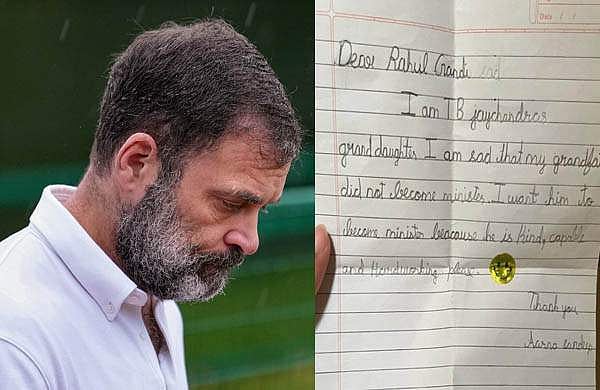 Date
Dear Rahul Gandi sad
I am TB jaychandras
granddaughter I am sad that my grandfa
did not become minister. I want him to
become minister beacause he is Kind, capable
and Hardworking please
Thank you